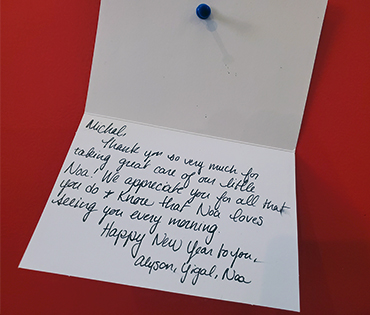 Michal,
Thank you so very much for
taking great care of our little
Noa! We appreciate you for all that
you do & know that Noa loves
seeing you every morning.
Happy New Year to you,
Alyson, Yigal, Noa